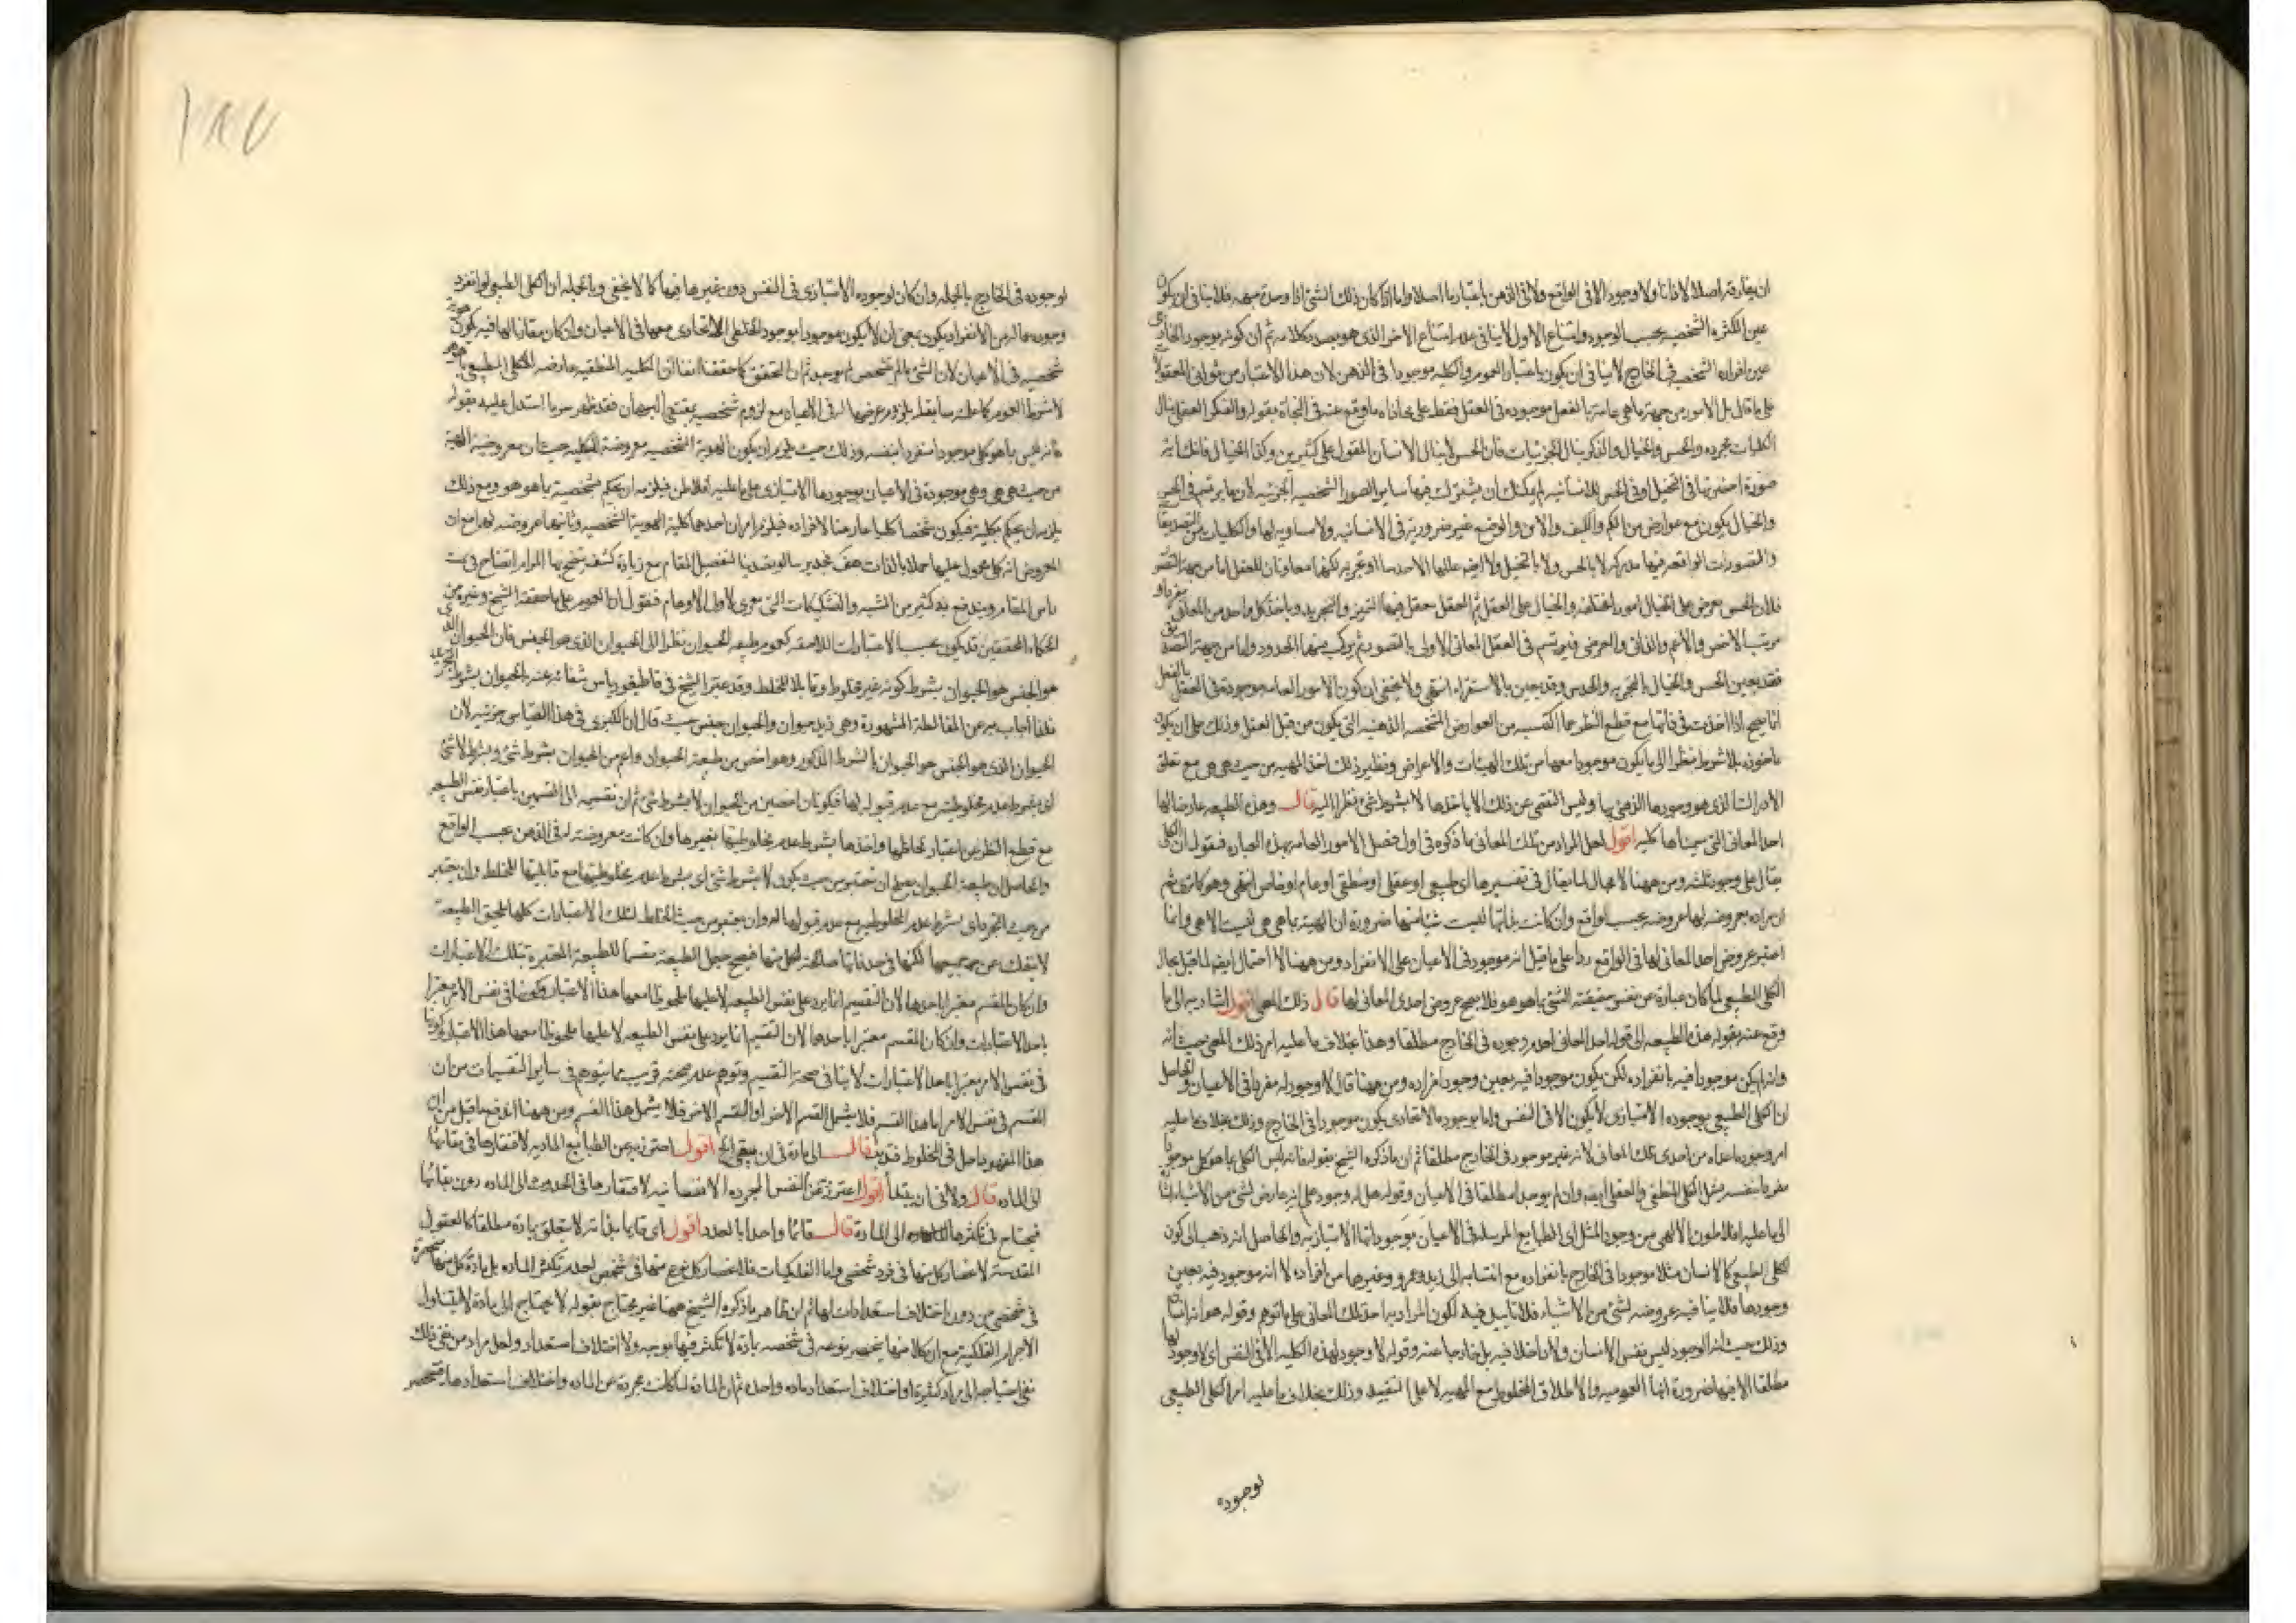 ان يفارقه اصلا لا ذاتا ولا وجودا لا فى الواقع ولا فى الذهن باعتبار ما اصلا واما اذا كان ذلك الشئ ذا وحدة مبهمه فلا ينافى ان يكون
عين الكثره الشخصيه بحسب الوجود وامتناع الاول لا ينافى عدم امتناع الاخر الذى هو بصدد كلامه ثم ان كونه موجود الخارجى
عين افراده الشخصيه فى الخارج لا ينافى ان يكون باعتبار العموم والكليه موجودا فى الذهن لان هذا الاعتبار من ثوانى المعقولات
على ما قال بل الامور من جهة ما هى عامة بالفعل موجوده فى العقل فقط على محاذاه ما وقع عنه فى النجاة بقوله والفكر العقلى ينال
الكليات مجرده والحس والخيال والذكر ينال الجزئيات فان الحس لا ينال الانسان المقول على كثيرين وكذا الخيال فانك اية
صورة احضرتها فى التخيل او فى الحس للانسانيه لم يمكنك ان يشترك فيها ساير الصور الشخصيه الجزئيه لان ما يرتسم فى الحس
والخيال يكون مع عوارض من الكم والكيف والاين والوضع غير ضرورية فى الانسانيه ولا مساويه لها والكليات التصديقات
والتصورات الواقعه فيها مدركه لا بالحس ولا بالتخيل ولا ايضا عللها الاحدس او تجربه لكنهما معاونان للعقل اما من جهة التصور
فلان الحس يعرض على الخيال امورا مختلفه والخيال على العقل ثم العقل يفعل فيها التمييز والتجريد وياخذ كل واحد من المعانى مفردا و
مرتب الاخص والاعم والذاتى والعرضى فيرتسم فى العقل المعانى الاولى بالتصور ثم يركب منها الحدود واما من جهة التصديق
فقد يعين الحس والخيال بالتجربه والحدس وقد يعين بالاستقراء انتهى ولا يخفى ان كون الامور العامه موجودة فى العقل بالفعل
انما يصح اذا اخذت فى ذاتها مع قطع النظر عما اكتسبه من العوارض المشخصه الذهنيه التى يكون من قبل العقل وذلك على ان يكون
ماخوذه بلا شرط نظرا الى ما يكون موجودا معها من تلك الهيئات والاعراض ونظير ذلك اخذ المهيه من حيث هى هى مع تعلق
الادراك الذى هو وجودها الذهنى بها وليس التفصى عن ذلك الا باخذها لا بشرط شئ نظرا اليه قال وهذه الطبيعه عارضا لها
احد المعانى التى سميناها كليه اقول لعل المراد من تلك المعانى ما ذكره فى اول فصل الامور العامه بهذه العباره فنقول ان الكلى
يقال على وجوه ثلثه ومن ههنا لا مجال لما يقال فى تفسيرها اى طبيعى او عقلى او منطقى او عام او خاص انتهى وهو كما ترى ثم
ان مراده بعروضه لها عروضه بحسب الواقع وان كانت بذاتها ليست شيئا منها ضرورة ان المهيه بما هى هى ليست الا هى وانما
اعتبر عروض احد المعانى لها فى الواقع ردا على ما قيل انه موجود فى الاعيان على الانفراد ومن ههنا لا احتمال ايضا لما قيل بحال
الكلى الطبيعى لما كان عبارة عن نفس حقيقة الشئ بما هو هو فلا يصح عروض احدى المعانى لها قال ذلك المعنى اقول اشار به الى ما
وقع عنه بقوله هذه الطبيعه الى قوله احد المعانى احدها وجوده فى الخارج مطلقا وهذا بخلاف ما عليه امر ذلك المعنى حيث انه
وان لم يكن موجودا فيه بانفراده لكن يكون موجودا فيه بعين وجود افراده ومن ههنا قال لا وجود له مفردا فى الاعيان والحاصل
ان الكلى الطبيعى بوجوده الامتيازى لا يكون الا فى النفس واما بوجوده الاتحادى يكون موجودا فى الخارج وذلك بخلاف ما عليه
امر وجود ما عداه من احدى تلك المعانى لانه غير موجود فى الخارج مطلقا ثم ان ما ذكره الشيخ بقوله فانه ليس الكلى بما هو كلى موجودا
مفردا بنفسه يشمل الكلى المنطقى والعقلى ايضا وان لم يوجدا مطلقا فى الاعيان وقوله هل له وجود على انه عارض لشئ من الاشياء اشارة
الى ما عليه افلاطون الالهى من وجود المثل اى الطبايع المرسله فى الاعيان بوجوداتها الامتيازيه والحاصل انه ذهب الى كون
الكلى الطبيعى كالانسان مثلا موجودا فى الخارج بانفراده مع انتسابه الى زيد وعمرو وغيرهما من افراده لا انه موجود فيه بعين
وجودها فلا ينافيه عروضه لشئ من الاشياء فلا تاييد فيه لكون المراد به احد تلك المعانى على ما توهم وقوله هو انسان
وذلك حيث ان الوجود ليس نفس الانسان ولا داخلا فيه بل خارجا عنه وقوله لا وجود لهذه الكليه الا فى النفس اى لا وجود لها
مطلقا الا فيها ضرورة انها العموميه والاطلاق المخلوط مع المهيه لا على التقييد وذلك بخلاف ما عليه امر الكلى الطبيعى
لوجوده
لوجوده فى الخارج بالجمله وان كان لوجوده الامتيازى فى النفس دون غيرها فيها كما لا يخفى وبالجمله ان الكلى الطبيعى لو انفرد
وجوده الانفراد يكون بمعنى ان لا يكون موجودا بوجود الخلطى الاتحادى معها فى الاعيان وان كان مقارنا لها فيه يكون هوية
شخصيه فى الاعيان لان الشئ ما لم يتشخص لم يوجد ثم ان المتحقق كما حققنا انفا ان الكليه المنطقيه عارضه للكلى الطبيعى
لا بشرط العموم مع لزوم شخصيه بمقتضى البرهان فقد ظهر سر ما استدل عليه بقوله
فانه ليس بما هو كلى موجودا مفردا بنفسه وذلك حيث يلزم ان يكون الهوية الشخصيه معروضة للكليه حيث ان معروضية المهية
من حيث هى هى وهى موجودة فى الاعيان بوجودها الامتيازى على ما عليه افلاطن فيلزمه ان يحكم بشخصية بما هو هو ومع ذلك
يلزمه ان يحكم بكليته فيكون شخصا كليا عارضا لافراده فيلزم امران احدهما كلية الهوية الشخصيه وثانيهما عروضه لها مع ان
المعروض انه كلى محمول عليها حملا بالذات هف فجدير بنا لو تصدينا لتفصيل المقام مع زيادة كشف يتضح بها المرام
المقام ويندفع به كثير من الشبه والتشكيكات التى تعرى لاولى الاوهام فنقول ان العموم على ما حققه الشيخ وغيره من
الحكماء المحققين قد يكون بحسب الاعتبارات اللاحقه كعموم طبيعه الحيوان نظرا الى الحيوان الذى هو الجنس فان الحيوان الذى
هو الجنس هو الحيوان بشرط كونه غير مخلوط وقابلا للخلط وقد عبر الشيخ فى قاطيغورياس شفائه عنه بالحيوان بشرط التجريد
فلذا اجاب عن المغالطة المشهورة وهى زيد حيوان والحيوان جنس حيث قال ان الكبرى فى هذا القياس جزئيه لان
الحيوان الذى هو الجنس هو الحيوان بالشرط المذكور وهو اخص من طبيعة الحيوان واعم من الحيوان بشرط شئ وبشرط لا شئ
اى بشرط عدم مخلوطيته مع عدم قبوله لها فيكونان اخصين من الحيوان لا بشرط شئ ثم ان تقسيمه الى القسمين باعتبار نفس الطبيعه
مع قطع النظر عن اعتبار خلطها واخذها بشرط عدم مخلوطيتها بغيرها وان كانت معروضة له فى الذهن بحسب الواقع
والحاصل ان طبيعة الحيوان يصلح ان تعتبر من حيث يكون لا بشرط شئ اى بشرط عدم مخلوطيتها مع قابليتها للخلط وان يعتبر
من حيث التجرد اى بشرط عدم المخلوطيه مع عدم قبولها له وان يعتبر من حيث الخلط فتلك الاعتبارات كلها يلحق الطبيعة
لا ينفك عن جميعها لكنها فى حد ذاتها صالحة لكل منها فيصح جعل الطبيعة مقسما للطبيعة المعتبرة بتلك الاعتبارات
وان كان المقسم معتبرا باحدها لان التقسيم انما يرد على نفس الطبيعه لا عليها ملحوظا معها هذا الاعتبار وكونها فى نفس الامر معتبرا
باحد الاعتبارات وان كان المقسم معتبرا باحدها لان التقسيم انما يرد على نفس الطبيعه لا عليها ملحوظا معها هذا الاعتبار وكونها
فى نفس الامر معتبرا باحد الاعتبارات لا ينافى صحة التقسيم وتوهم عدم صحته قريب مما يتوهم فى ساير التقسيمات من ان
المقسم فى نفس الامر اما هذا القسم فلا يشمل القسم الاخر او القسم الاخر فلا يشمل هذا القسم ومن ههنا اندفع ما قيل من ان
هذا المفهوم داخل فى المخلوط فتدبر قال الى مادة فى ان يبقى الخ اقول احترز به عن الطبايع الماديه لافتقارها فى بقائها
الى الماده قال ولا فى ان يبتدأ اقول احترز عن النفس المجرده الانسانيه لافتقارها فى الحدوث الى الماده دون بقائها
فيحتاج فى تكثرها الى المادة قال قائما واحدا بالعدد اقول اى قايما بذاته لا يتعلق بمادة مطلقا كالعقول
المقدسة لانحصار كل منها فى فرد شخصى واما الفلكيات فلانحصار كل نوع منها فى شخص لعدم تكثر الماده بل مادة كل منها منحصرة
فى شخص من دون اختلاف استعدادات لها ثم ان ظاهر ما ذكره الشيخ ههنا غير محتاج بقوله لا يحتاج الى مادة لا يتناول
الاجرام الفلكية مع ان كلا منها ينحصر نوعه فى شخصه بمادة لا تكثر فيها بوجه ولا اختلاف استعداد ولعل مراده من نفى ذلك
نفى احتياجه الى مواد كثيرة او اختلاف استعداد ماده واحده ثم ان المادة لما كانت مجردة عن الماده واختلاف استعدادها فتنحصر